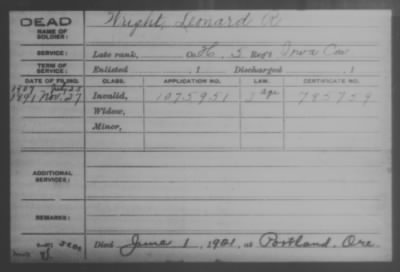 DEAD
Wright, Leonard R
NAME OF SOLDIER:
SERVICE: Late rank, Co. H, 5 Reg't Iowa Cav
TERM OF SERVICE: Enlisted , 1 Discharged , 1
DATE OF FILING. CLASS. APPLICATION NO. LAW. CERTIFICATE NO.
1907 July 25
1891 Nov. 27 Invalid, 1075951 785759
Widow,
Minor,
ADDITIONAL SERVICES:
REMARKS:
Died June 1, 1901, at Portland, Ore.